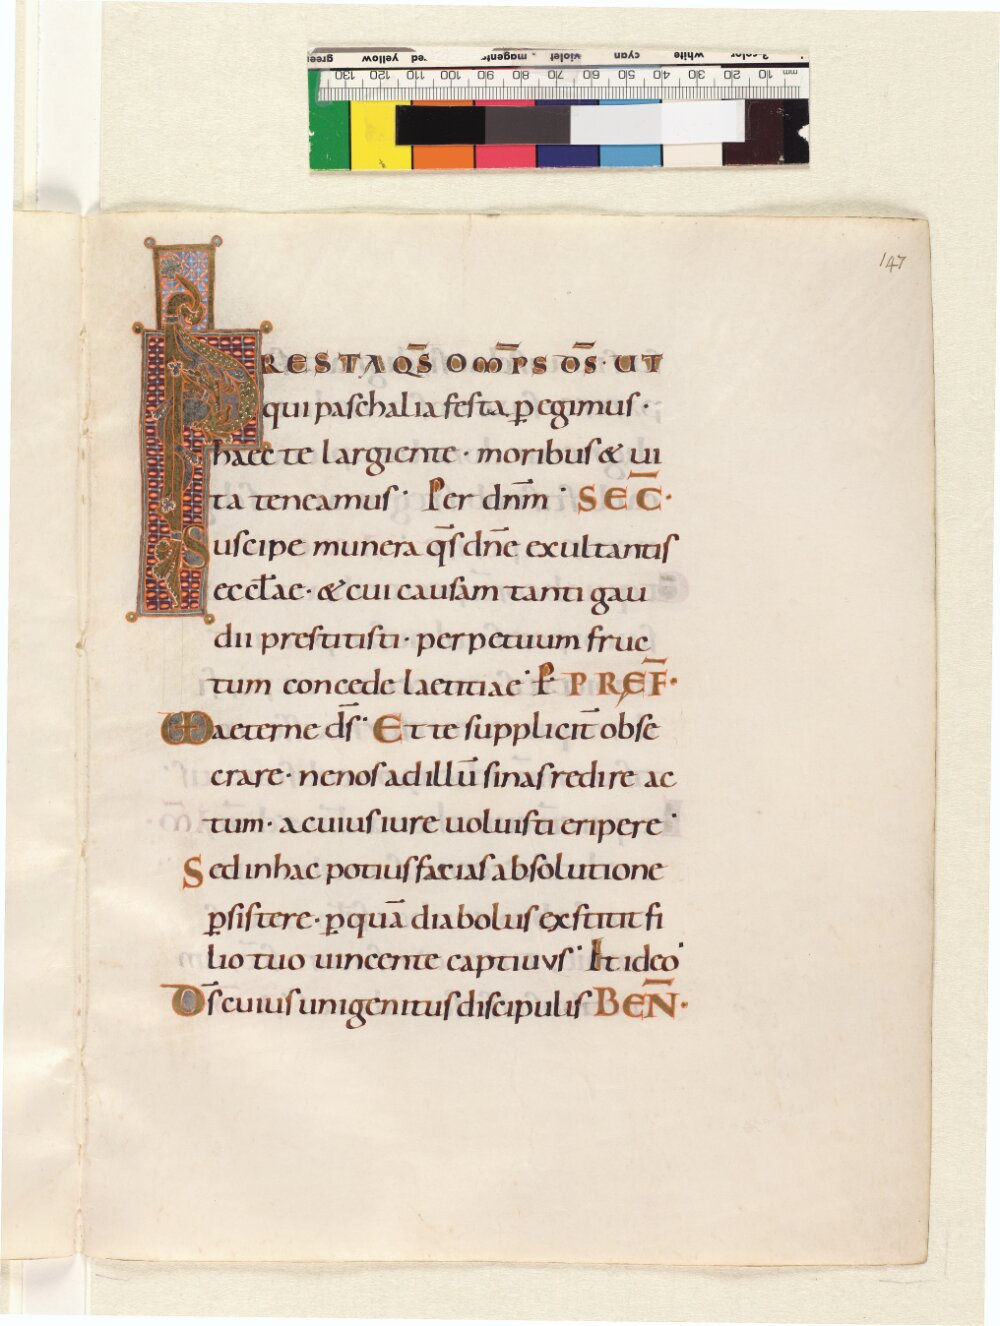 green yellow red magenta violet cyan white 3-color
130 120 110 100 90 80 70 60 50 40 30 20 10 mm
147
PRESTA QS̄ OM̄PS D̄S· UT
qui paschalia festa ꝑegimus·
haec te largiente· moribus & ui
ta teneamus· Per dn̄m· SEC̄·
Suscipe munera qs̄ dn̄e exultantis
eccl̄ae· & cui causam tanti gau
dii prestitisti· perpetuum fruc
tum concede laetitiae· P̄ PREF̄·
UD aeterne ds̄· Et te supplicit̄ obse
crare· ne nos ad illū sinas redire ac
tum· a cuius iure uoluisti eripere·
Sed in hac potius facias absolutione
ꝑsistere· ꝑ quā diabolus exstitit fi
lio tuo uincente captiuus· Et ideo·
D̄s cuius unigenitus discipulis BEN̄·